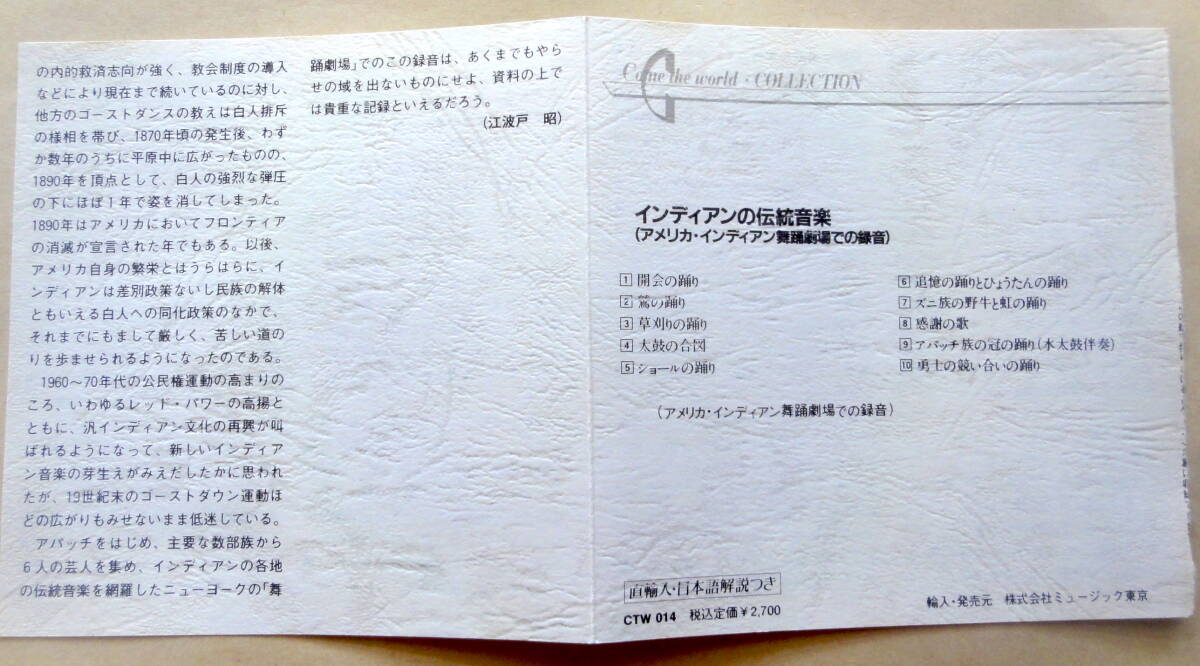 の内的救済志向が強く、教会制度の導入
などにより現在まで続いているのに対し、
他方のゴーストダンスの教えは白人排斥
の様相を帯び、1870年頃の発生後、わず
か数年のうちに平原中に広がったものの、
1890年を頂点として、白人の強烈な弾圧
の下にほぼ1年で姿を消してしまった。
1890年はアメリカにおいてフロンティア
の消滅が宣言された年でもある。以後、
アメリカ自身の繁栄とはうらはらに、イ
ンディアンは差別政策ないし民族の解体
ともいえる白人への同化政策のなかで、
それまでにもまして厳しく、苦しい道の
りを歩ませられるようになったのである。
1960〜70年代の公民権運動の高まりの
ころ、いわゆるレッド・パワーの高揚と
ともに、汎インディアン文化の再興が叫
ばれるようになって、新しいインディア
ン音楽の芽生えがみえだしたかに思われ
たが、19世紀末のゴーストダウン運動ほ
どの広がりもみせないまま低迷している。
アパッチをはじめ、主要な数部族から
6人の芸人を集め、インディアンの各地
の伝統音楽を網羅したニューヨークの「舞
踊劇場」でのこの録音は、あくまでもやら
せの域を出ないものにせよ、資料の上で
は貴重な記録といえるだろう。
(江波戸 昭)
Come the world・COLLECTION
インディアンの伝統音楽
(アメリカ・インディアン舞踊劇場での録音)
1 開会の踊り
2 鷲の踊り
3 草刈りの踊り
4 太鼓の合図
5 ショールの踊り
6 追憶の踊りとひょうたんの踊り
7 ズニ族の野牛と虹の踊り
8 感謝の歌
9 アパッチ族の冠の踊り(水太鼓伴奏)
10 勇士の競い合いの踊り
(アメリカ・インディアン舞踊劇場での録音)
直輸入・日本語解説つき
CTW 014 税込定価¥2,700
輸入・発売元 株式会社ミュージック東京